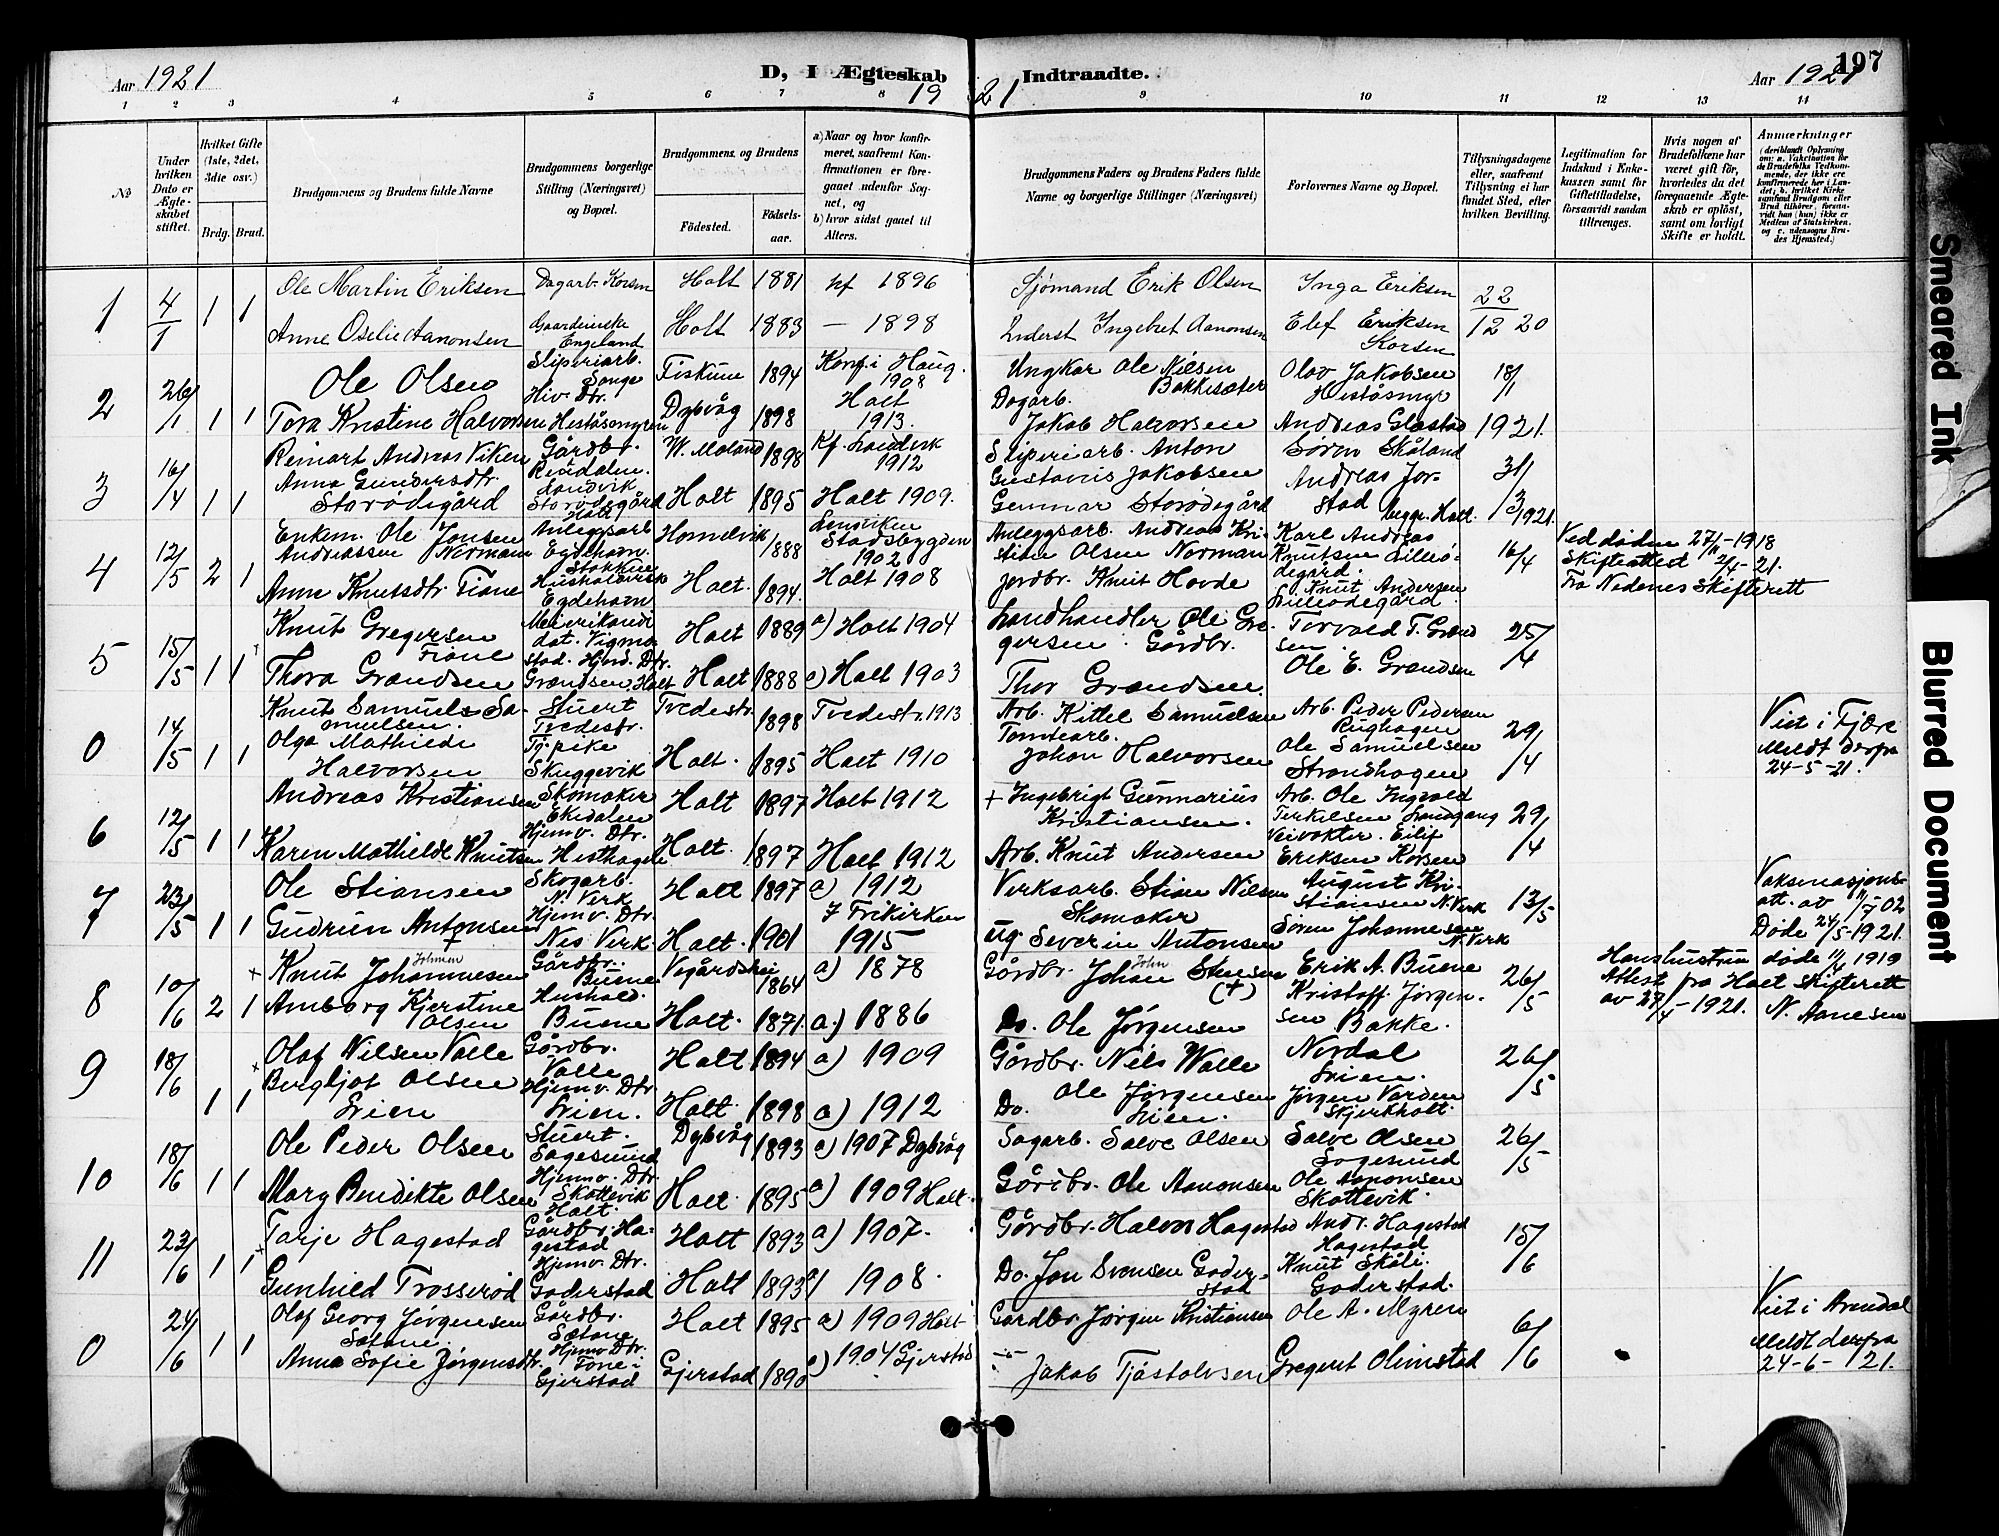 Aar 1921
D, I Ægteskab Indtraadte.
19 21
Aar 1921
197
1 2 3 4 5 6 7 8 9 10 11 12 13 14
No
Under hvilken Dato er Ægteskabet stiftet.
Hvilket Gifte (1ste, 2det, 3die osv.)
Brdg. Brud.
Brudgommens og Brudens fulde Navne
Brudgommens borgerlige Stilling (Næringsvei) og Bopæl.
Brudgommens og Brudens
Fødested.
Fødselsaar.
a) Naar og hvor konfirmeret, saafremt Konfirmationen er foregaaet udenfor Sognet, og
b) hvor sidst gaaet til Alters.
Brudgommens Faders og Brudens Faders fulde Navne og borgerlige Stillinger (Næringsvei)
Forlovernes Navne og Bopæl.
Tillysningsdagene eller, saafremt Tillysning ei har fundet Sted, efter hvilken Bevilling.
Legitimation for Indskud i Enkekassen samt for Giftetilladelse, forsaavidt saadan tiltrænges.
Hvis nogen af Brudefolkene har været gift før, hvorledes da det foregaaende Ægteskab er opløst, samt om lovligt Skifte er holdt.
Anmærkninger (deriblandt Oplysning om: a. Vakcination for de Brudefolks Vedkommende, der ikke ere konfirmerede her i Landet; b. hvilket Kirkesamfund Brudgom eller Brud tilhører, forsaavidt han (hun) ikke er Medlem af Statskirken, og c. udensogns Brudes Hjemsted.)
1 4/1 1 1 Ole Martin Eriksen Dagarb. Korsen Holt 1881 kf 1896 Sjømand Erik Olsen Inga Eriksen 22/12 20
Anne Oselie Aanonsen Gaardeierske Engeland Holt 1883 — 1898 Inderst Ingebret Aanonsen Elef Eriksen Korsen
2 26/1 1 1 Ole Olsen Sliperiarb. Songe Fiskum 1894 Konf. i Haug. 1908 Ungkar Ole Nilsen Bakkesæter Olav Jakobsen Heståsmyr 18/1
Tora Kristine Halvorsen Hjv. Dtr. Heståsmyren Dybvåg 1898 Holt 1913. Dagarb. Jakob Halvorsen Andreas Glastad 1921.
3 16/4 1 1 Reinart Andreas Viken Gårdbr. Rendalen Landvik W. Moland 1898 Kf. Landvik 1912 Sliperiarb. Anton Gustavus Jakobsen Søren Skåland 31/3 1921.
Anna Gundersdtr. Storødegård Storødegård Holt Holt 1895 Holt 1909. Gunnar Storødegård Andreas Jorstad begge Holt.
4 12/5 2 1 Enkem. Ole Jonsen Andreassen Norman Anleggsarb Egdehavn. Stokken Homelvik 1888 Lensviken Stadsbygden 1902 Anleggsarb. Andreas Kristian Olsen Norman Karl Andreas Knutsen Lilleødegård. 16/4 Ved døden 27/11-1918 Skifteattest 2/4-21. Fra Nedenes Skifterett
Anne Knutsdtr. Fiane Husholderske Egdehavn Holt. 1894. Holt 1908 jordbr. Knut Hovde Knut Andersen Lilleødegård.
5 15/5 1 1 Knut Gregersen Fiane Meierikandidat. Vigmostad Holt 1889 a) Holt 1904 Landhandler Ole Gregersen Torvald T. Grændsen 25/4
Thora Grændsen Hjv. Dtr. Grændsen, Holt Holt 1888 a) Holt 1903 Gårdbr. Thor Grændsen Ole E. Grændsen
0 14/5 1 1 Knut Samuels Samuelsen. Stuert Tvedestr. Tvedestr. 1898 Tvedestr. 1913 Arb. Kittel Samuelsen Arb. Peder Pedersen Rughagen 29/4 Viet i Fjære Meldt derfra 24-5-21.
Olga Mathilde Halvorsen Tj. pike Skuggevik Holt. 1895 Holt 1910 Tomtearb. Johan Halvorsen Ole Samuelsen Strandhagen
6 12/5 1 1 Andreas Kristiansen Skomaker Ekedalen Holt 1897 Holt 1912 + Ingebrigt Gunnarius Kristiansen. Arb. Ole Ingvald Terkelsen Landgang 29/4
Karen Mathilde Knutsen Hjemv. Dtr. Hesthagen Holt. 1897 Holt 1912 Arb. Knut Andersen Veivokter. Eilif Eriksen Korsen
7 23/5 1 1 Ole Stiansen Skogarb. N. Verk Holt 1897 a) 1912 Verksarb. Stian Nilsen August Kristiansen N. Verk 13/5 Vaksenasjonsatt. av 11/7 02 Døde 24/5-1921.
Gudrun Antonsen Hjemv. Dtr. Nes Verk. Holt. 1901 I Frikirken 1915 Skomaker Severin Antonsen Søren Johannesen N. Verk
8 10/6 2 1 + Knut Johannesen Gårdbr. Buene Vegårdshei 1864 a) 1878 Gårdbr. Johan Stensen (+) Erik A. Buene 26/5 Hans hustru døde 11/4 1919 Attest fra Holt Skifterett av 27/4-1921. N. Aanesen
Amborg Kjerstine Olsen Hushold. Buene Holt. 1871. a.) 1886 Do. Ole Jørgensen Kristoff. Jørgensen Bakke.
9 18/6 1 1 Olaf Nilsen Valle Gårdbr. Valle Holt 1894 a) 1909 Gårdbr. Nils Walle Nordal Lien. 26/5
+ Bergljot Olsen Lien Hjemv. Dtr. Lien. Holt. 1898 a) 1912 Do. Ole Jørgensen Lien. Jørgen Varden Skjerkholt.
10 18/6 1 1 Ole Peder Olsen Stuert. Sagesund Dybvåg 1893 a) 1907 Dybvåg Sagarb. Salve Olsen Salve Olsen Sagesund 26/5
Mary Bendikte Olsen Hjemv. Dtr. Skottevik Holt. Holt. 1895 a) 1909 Holt. Gårdbr. Ole Aanonsen Ole Aanonsen Skottevik.
11 23/6 1 1 Tarje Hagestad Gårdbr. Hagestad Holt 1893 a) 1907. Gårdbr. Halvor Hagestad Andr. Hagestad Hagestad 15/6
Gunhild Trosserød Hjemv. Dtr. Goderstad Holt 1893 a) 1908. Do. Jon Svensen Goderstad Knut Skåli. Goderstad.
0 24/6 1 1 Olaf Georg Jørgensen Sætane. Gårdbr. Sætane Holt 1895 a) 1909 Holt Gårdbr. Jørgen Kristiansen Ole A. Myren 6/6 Viet i Arendal Meldt derfra 24-6-21.
Anna Sofie Jørgensdtr. Hjemv. Dtr. Tone i Gjerstad Gjerstad 1890 a) 1904 Gjerstad Jakob Tjåstolvsen Gregert Olimstad
Smeared Ink
Blurred Document